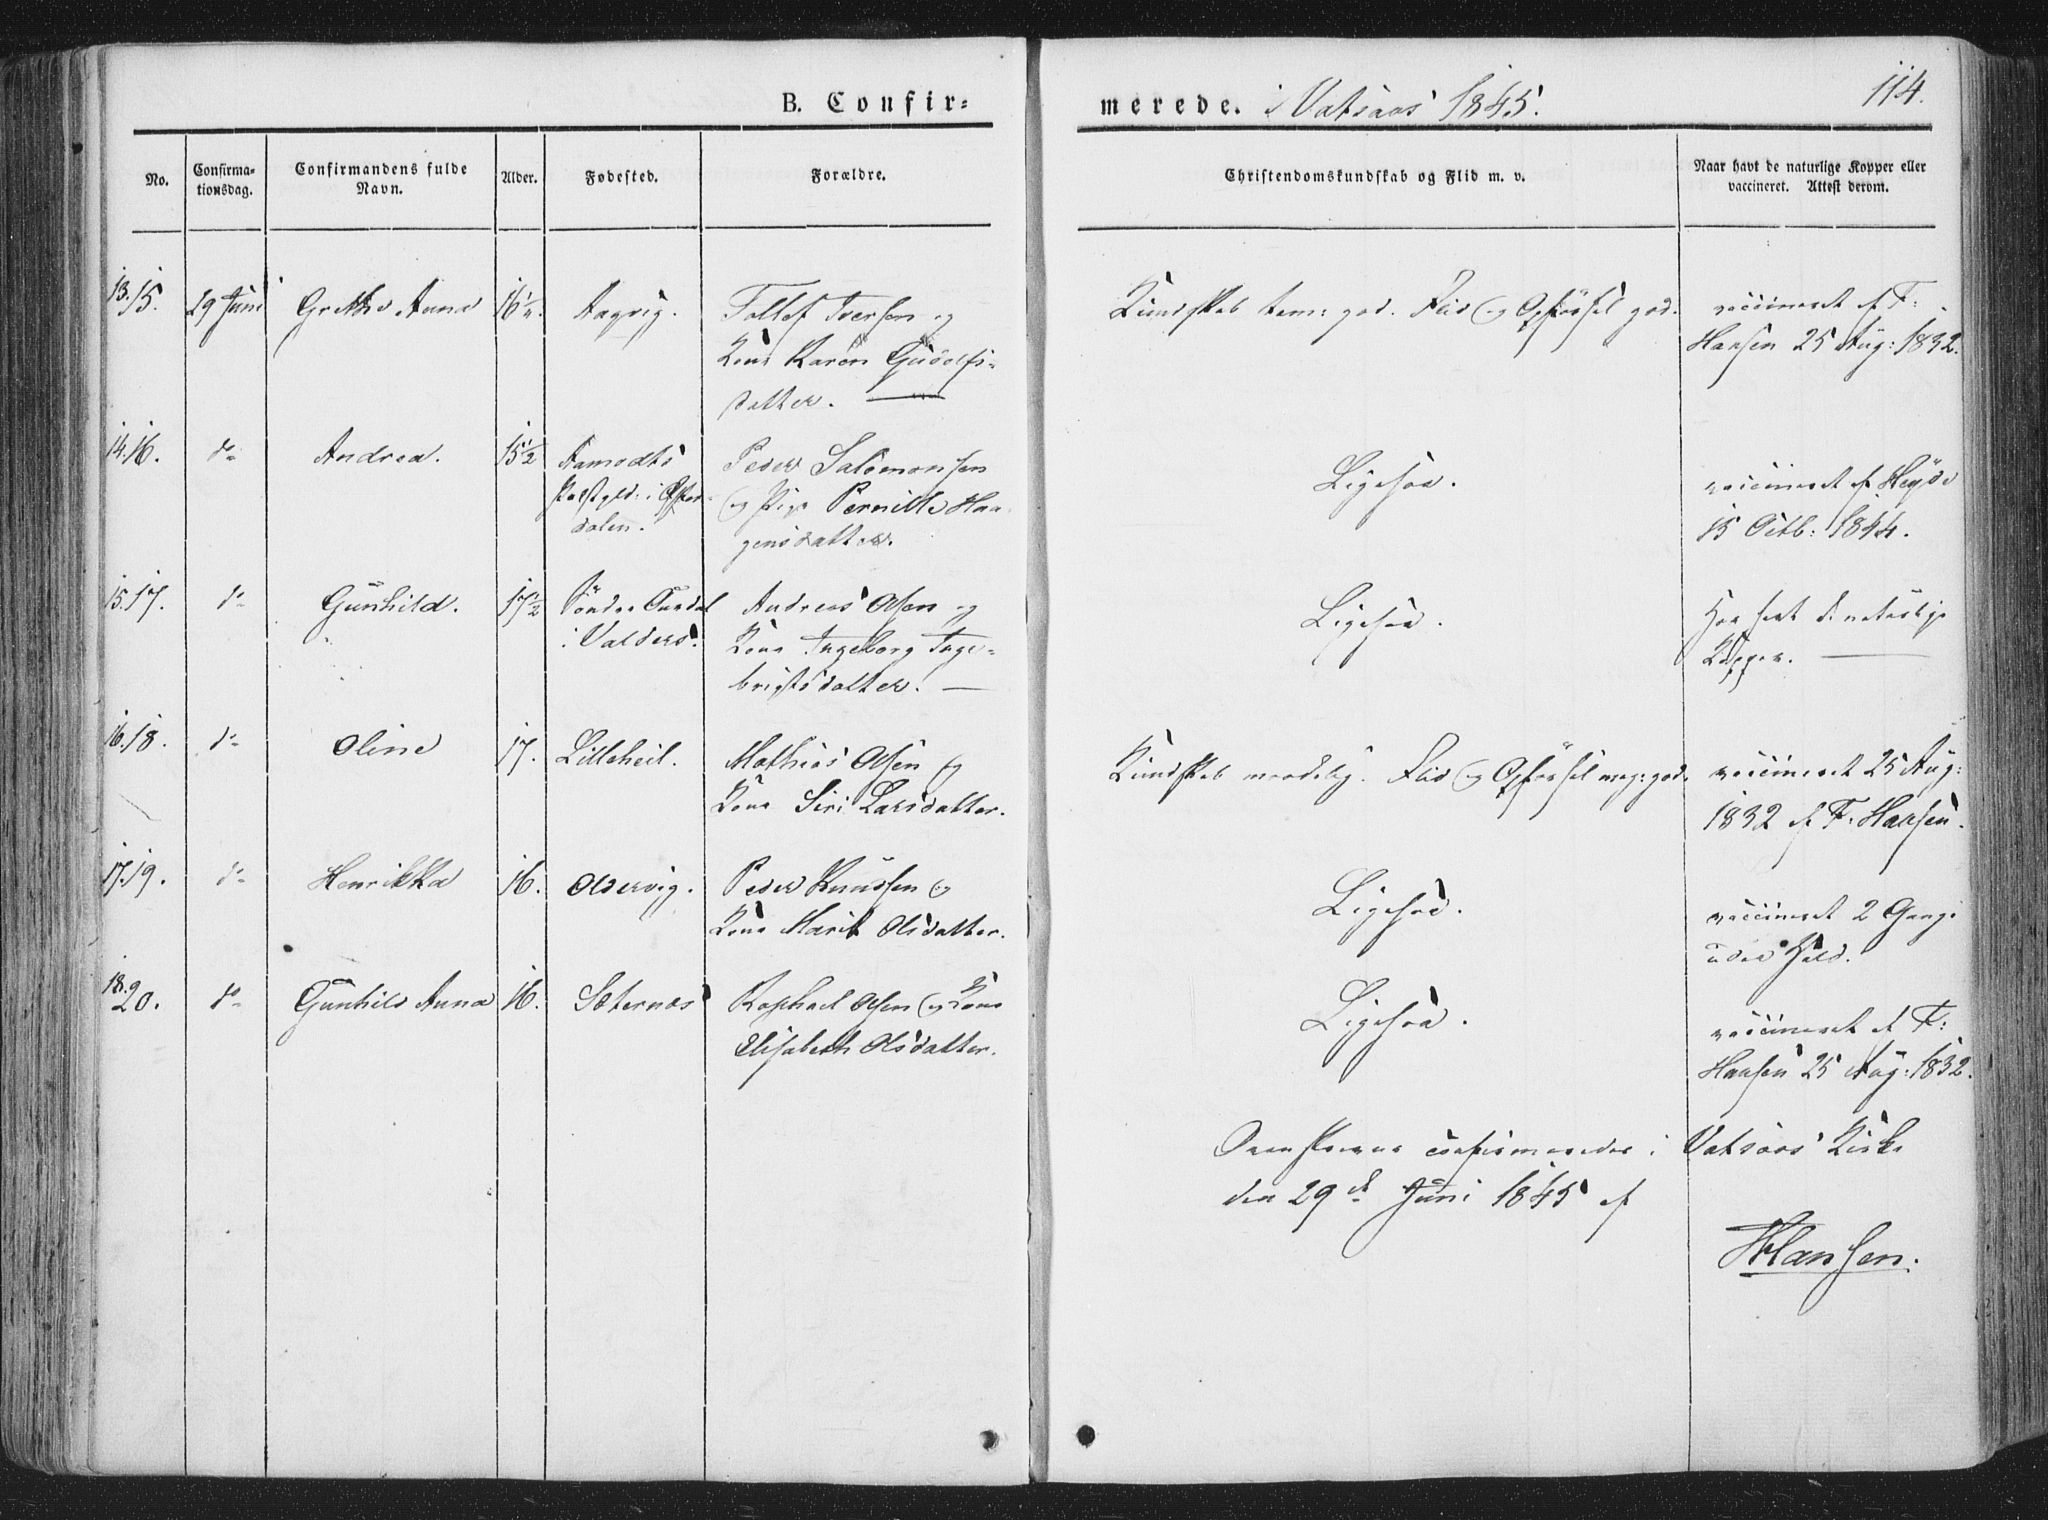 114.
B. Confir-
merede. i Vatsaas 1845.
No.
Confirma-
tionsdag.
Confirmandens fulde
Navn.
Alder.
Fødested.
Forældre.
Christendomskundskab og Flid m. v.
Naar havt de naturlige Kopper eller
vaccineret. Attest derom.
13. 15. 29 Juni Grethe Anna 16 Aagvig. Tollef Iversen og
Kone Karen
datter.
Kundskab tem: god. Flid og Opførsel god.
vaccineret af F:
Hansen 25 Aug: 1832.
14. 16. do Andrea. 15½ Aamodts
Præstgld: i Øster-
dalen.
Peder Salomonsen
og Pige Pernille Haa-
gensdatter.
Ligesaa.
vaccineret af Heyde
15 Octb: 1844.
15. 17. do Gunhild. 17½ Søndre Aurdal
i Valders.
Andreas Olsen og
Kone Ingeborg Inge-
brigtsdatter.
Ligesaa.
Har havt de naturlige
Kopper.
16. 18. do Oline 17. Lilleheil. Mathias Olsen og
Kone Siri Larsdatter.
Kundskab maadelig. Flid og Opførsel meg: god.
vaccineret 25 Aug:
1832 af F. Hansen.
17. 19. do Henrikka 16. Oldervig. Peder Knudsen og
Kone Marit Olsdatter.
Ligesaa.
vaccineret 2 Gange
uden Held.
18. 20. do Gunhild Anna 16. Sæternæs Raphael Olsen og Kone
Elisabeth Olsdatter.
Ligesaa.
vaccineret af F:
Hansen 25 Aug: 1832.
Ovenskrevne confirmerede i Vatsaas Kirke
den 29de Juni 1845 af
Hansen.